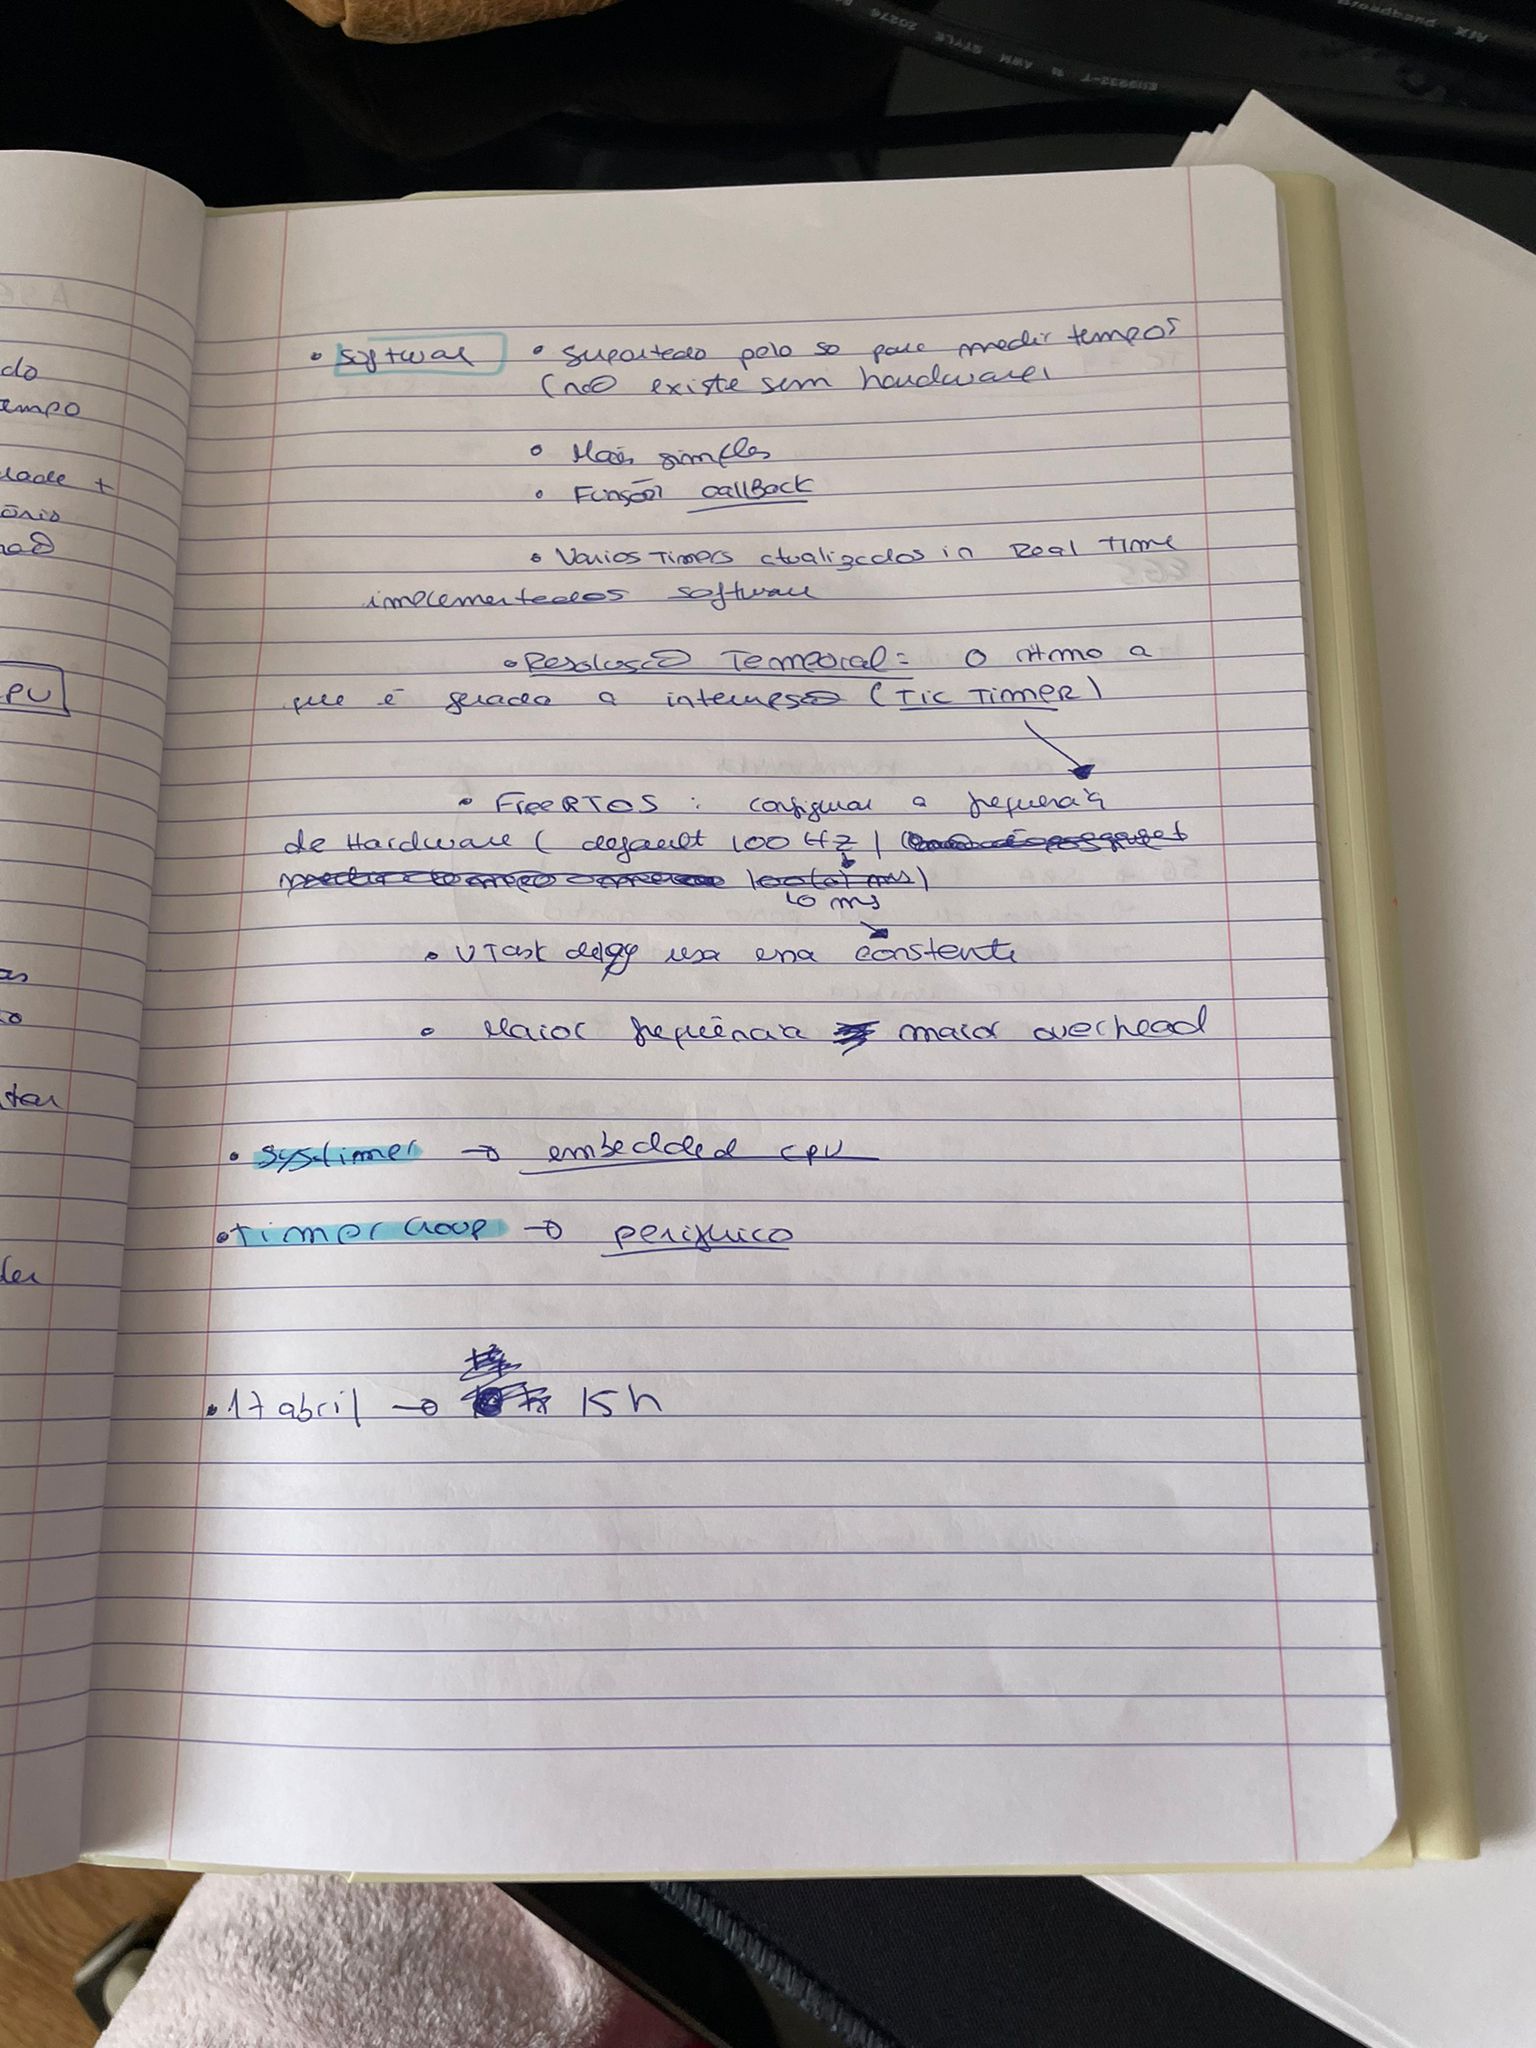 do
empo
dade +
ório
PU
as
tar
der
• Software • Suportado pelo so para medir tempos
(não existe sem hardware)
• Mais simples
• Função callBack
• Varios Timers atualizados in Real Time
implementados software
• Resolução Temporal = O ritmo a
que é gerada a interrupção (TIC TIMER)
• FreeRTOS : configurar a frequência
de Hardware ( default 100 Hz )
10 ms
• VTask delay usa ena constante
• Maior frequência maior overhead
• Systimer → embedded CPU
• Timer Group → periférico
• 17 abril → 15h
EII9233-T AWM STYLE 20276